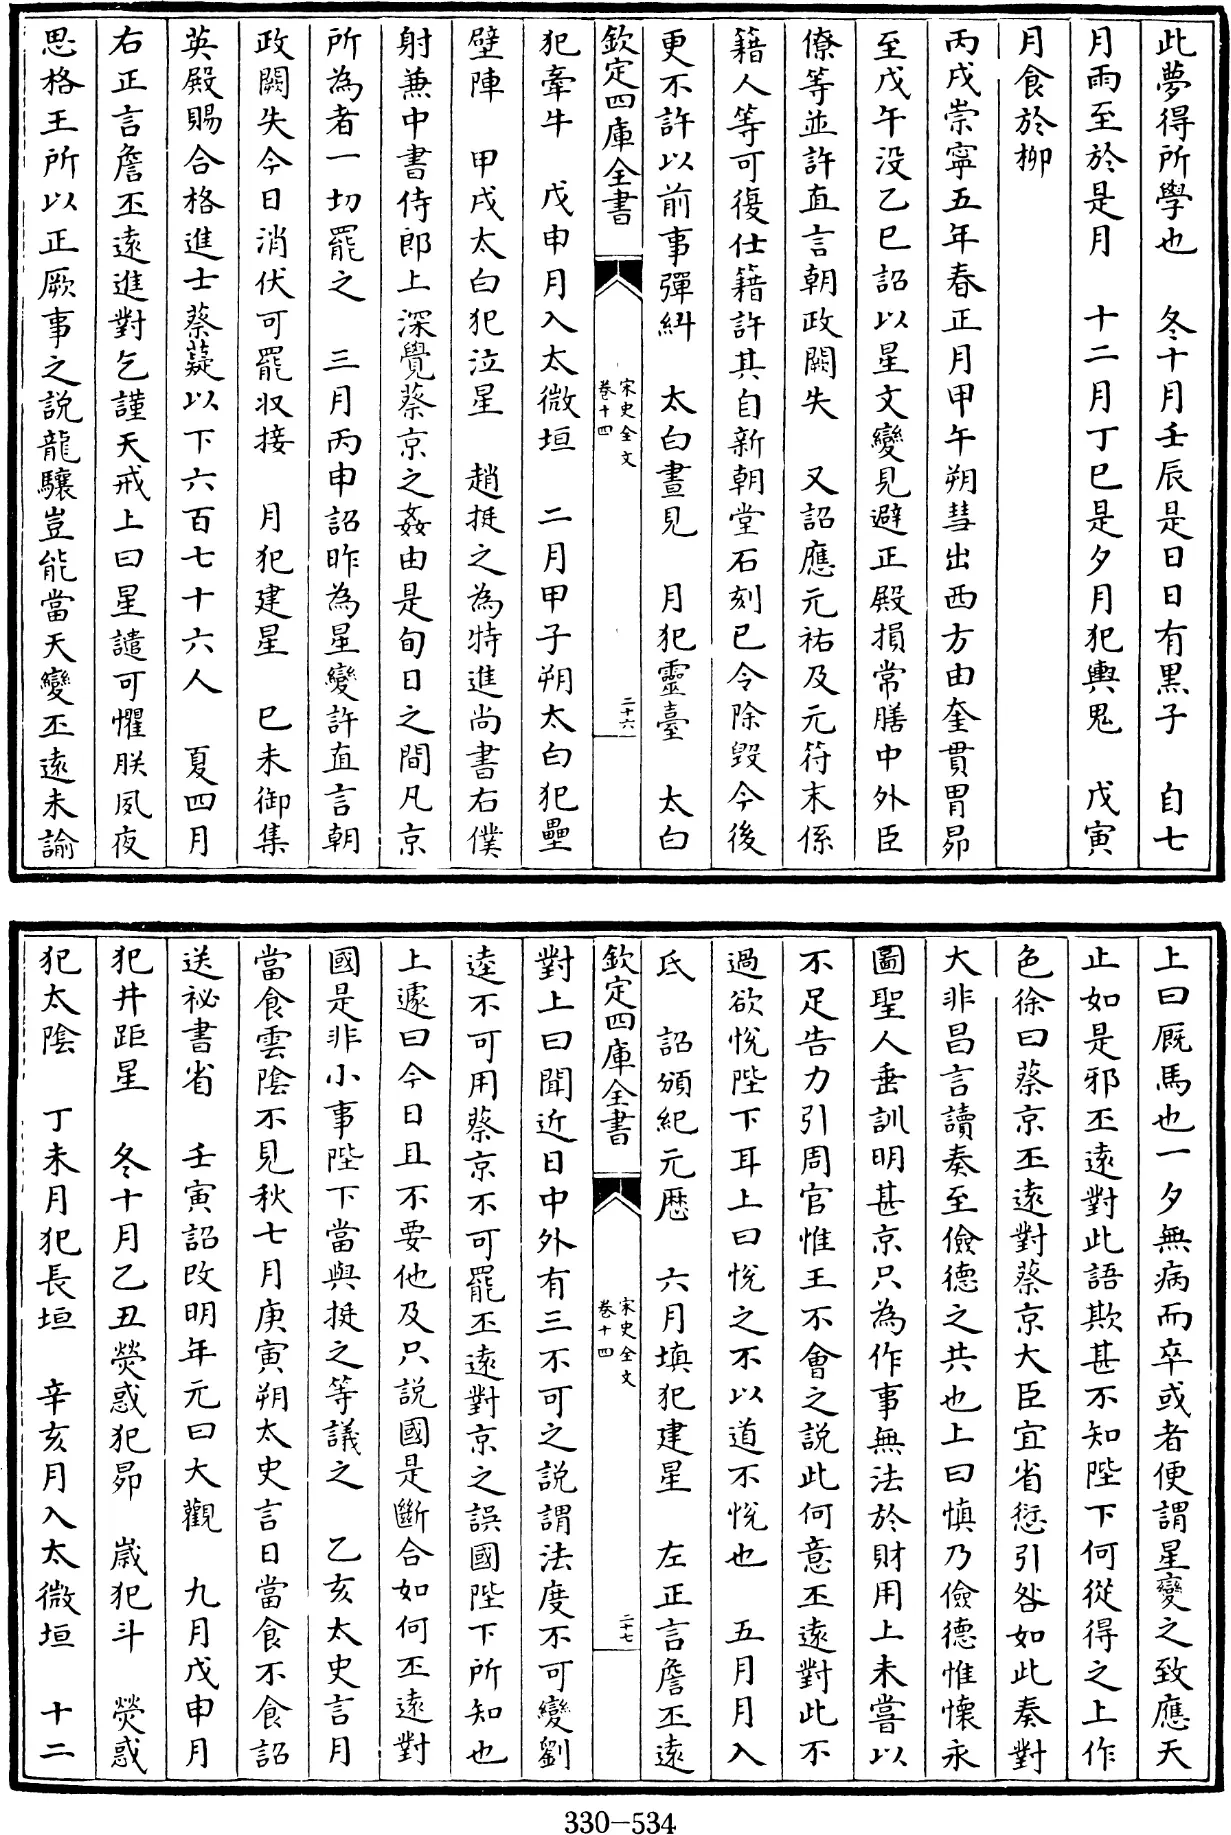 此夢得所學也　冬十月壬辰是日日有黑子　自七
月雨至於是月　十二月丁巳是夕月犯輿鬼　戊寅
月食於柳
丙戌崇寧五年春正月甲午朔彗出西方由奎貫胃昴
至戊午没乙巳詔以星文變見避正殿損常膳中外臣
僚等並許直言朝政闕失　又詔應元祐及元符末係
籍人等可復仕籍許其自新朝堂石刻已令除毁今後
更不許以前事彈糾　太白晝見　月犯靈臺　太白
欽定四庫全書
宋史全文
卷十四
二十六
犯牽牛　戊申月入太微垣　二月甲子朔太白犯壘
壁陣　甲戌太白犯泣星　趙挺之為特進尚書右僕
射兼中書侍郎上深覺蔡京之姦由是旬日之間凡京
所為者一切罷之　三月丙申詔昨為星變許直言朝
政闕失今日消伏可罷収接　月犯建星　已未御集
英殿賜合格進士蔡薿以下六百七十六人　夏四月
右正言詹丕遠進對乞謹天戒上曰星譴可懼朕夙夜
思格王所以正厥事之説龍驤豈能當天變丕遠未諭
上曰厩馬也一夕無病而卒或者便謂星變之致應天
止如是邪丕遠對此語欺甚不知陛下何從得之上作
色徐曰蔡京丕遠對蔡京大臣宜省愆引咎如此奏對
大非昌言讀奏至儉德之共也上曰慎乃儉德惟懷永
圖聖人垂訓明甚京只為作事無法於財用上未嘗以
不足告力引周官惟王不會之説此何意丕遠對此不
過欲悅陛下耳上曰悅之不以道不悅也　五月月入
氐　詔頒紀元歴　六月填犯建星　左正言詹丕遠
欽定四庫全書
宋史全文
卷十四
二十七
對上曰聞近日中外有三不可之説謂法度不可變劉
逵不可用蔡京不可罷丕遠對京之誤國陛下所知也
上遽曰今日且不要他及只説國是斷合如何丕遠對
國是非小事陛下當與挺之等議之　乙亥太史言月
當食雲陰不見秋七月庚寅朔太史言日當食不食詔
送祕書省　壬寅詔改明年元曰大觀　九月戊申月
犯井距星　冬十月乙丑熒惑犯昴　歲犯斗　熒惑
犯太陰　丁未月犯長垣　辛亥月入太微垣　十二
330-534